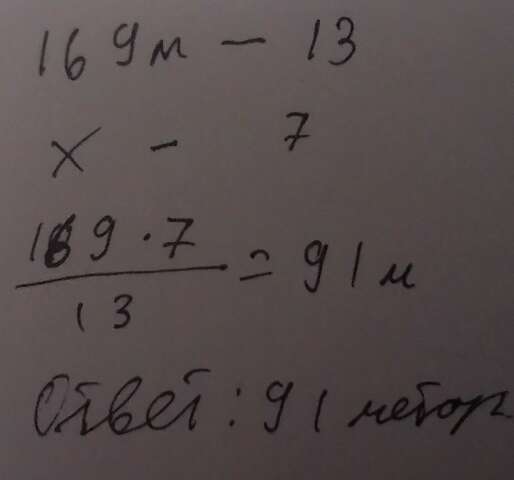 169м – 13
х – 7
169·7
13
= 91м
Ответ: 91 метр